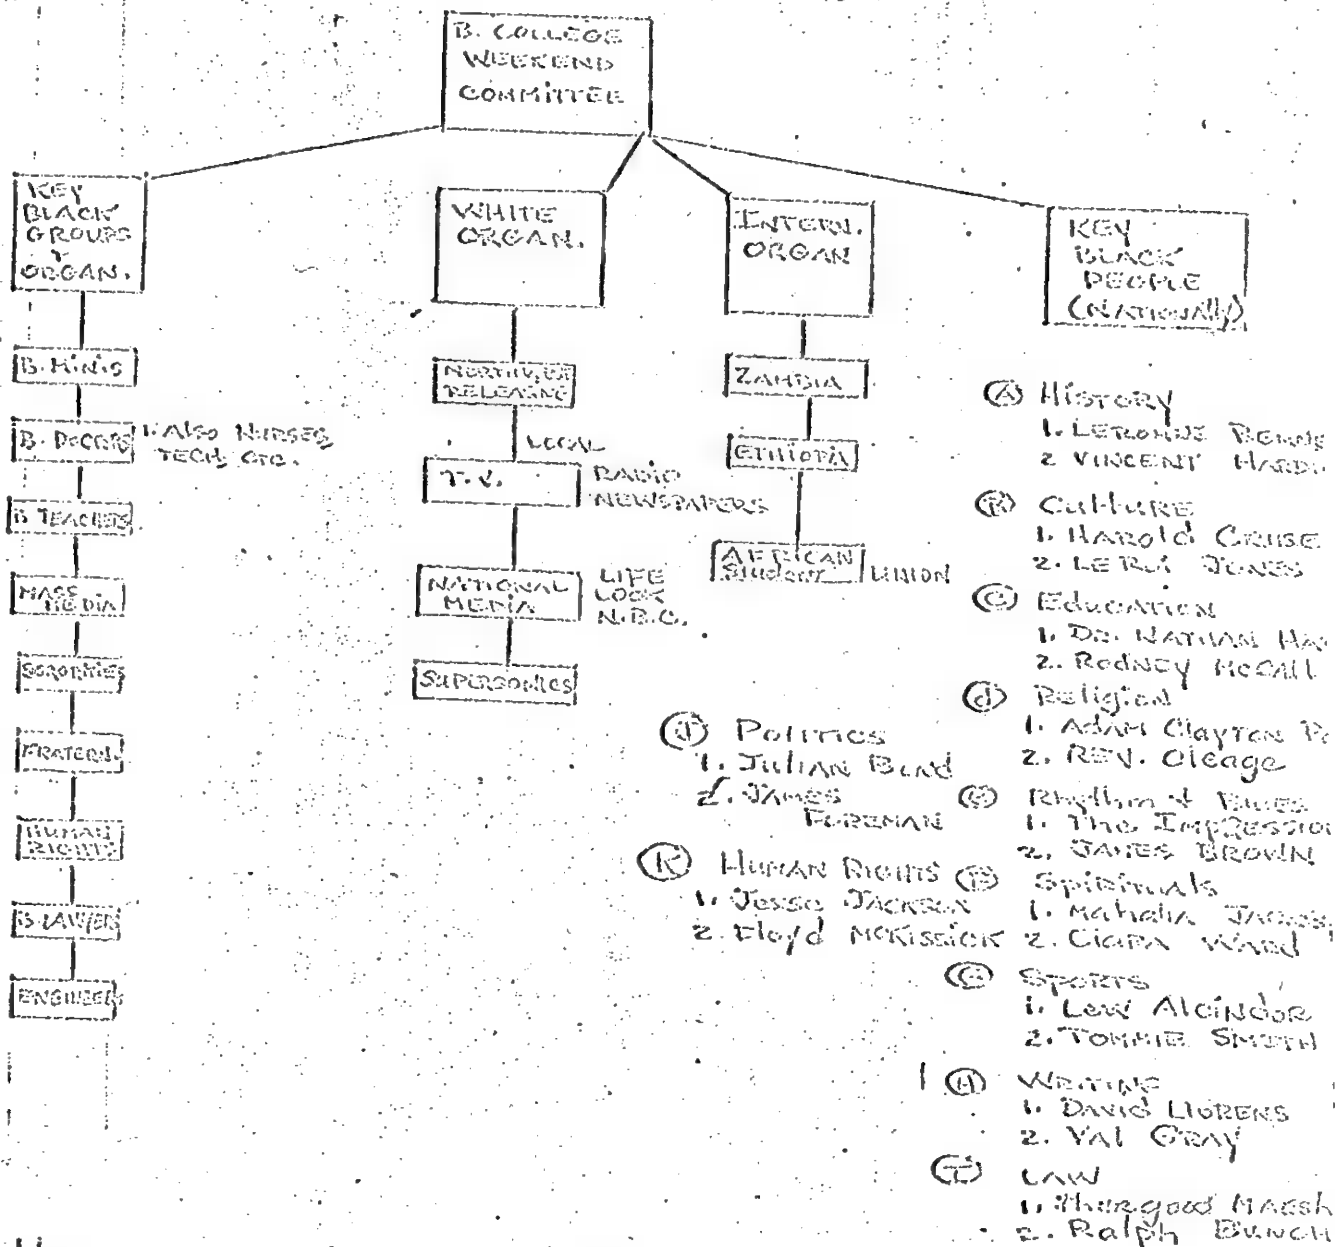 B. COLLEGE
WEEKEND
COMMITTEE
KEY
BLACK
GROUPS
+
ORGAN.
B. MINIS
B. DOCTRS
1. ALSO NURSES,
TECH, ETC.
B TEACHERS
MASS
MEDIA
SORORITIES
FRATERN.
HUMAN
RIGHTS
B. LAWYERS
ENGINEERS
WHITE
ORGAN.
RELEASING
LOCAL
T.V.
RADIO
NEWSPAPERS
NATIONAL
MEDIA
LIFE
LOOK
N.B.C.
SUPERSONICS
INTERN.
ORGAN
ZAMBIA
ETHIOPIA
AFRICAN
STUDENT UNION
KEY
BLACK
PEOPLE
(NATIONALLY)
A HISTORY
1. LERONNE BENNE
2 VINCENT HARDI
B CULTURE
1. HAROLD CRUSE
2. LEROI JONES
C EDUCATION
1. DR. NATHAN HA
2. RODNEY McCALL
d Religion
1. ADAM Clayton Po
2. REV. Cleage
E Rhythm + BLUES
1. The IMPRESSION
2. JAMES BROWN
F Spirituals
1. Mahalia JACKSO
2. CLARA WARD
G SPORTS
1. LEW ALCINDOR
2. TOMMIE SMITH
H WRITING
1. DAVID LLORENS
2. VAL GRAY
I LAW
1. Thurgood MARSH
2. Ralph BUNCH
J POLITICS
1. JULIAN BOND
2. JAMES
FOREMAN
K HUMAN RIGHTS
1. Jesse JACKSON
2. Floyd McKISSICK